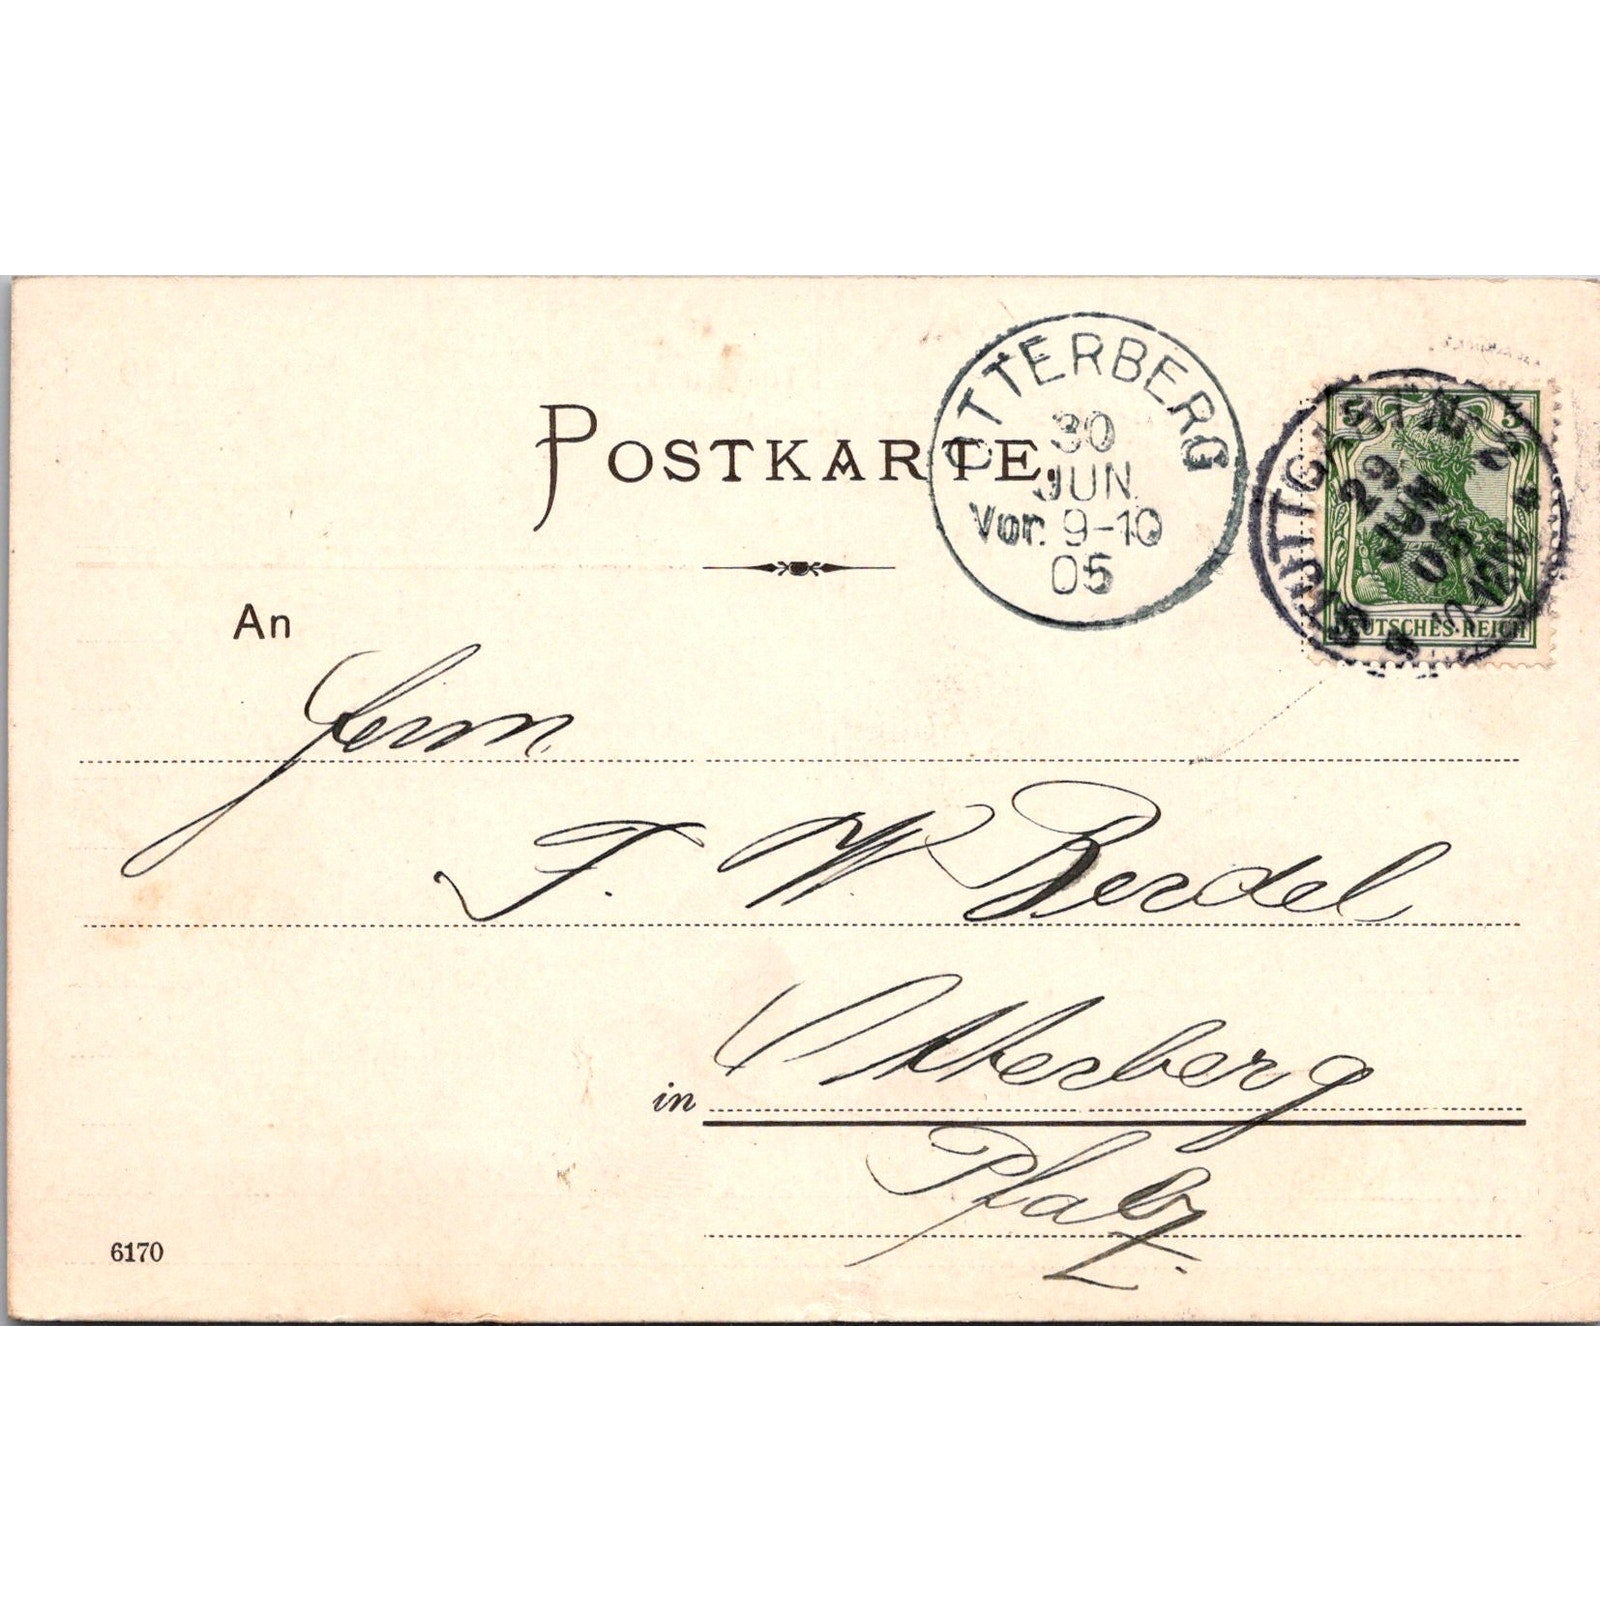 POSTKARTE.
OTTERBERG
30
JUN.
Vor. 9-10
05
STUTTGART
29
JUN
05
10-12N
5
DEUTSCHES REICH
An
Herrn
F. W. Berdel
in Otterberg
Pfalz.
6170